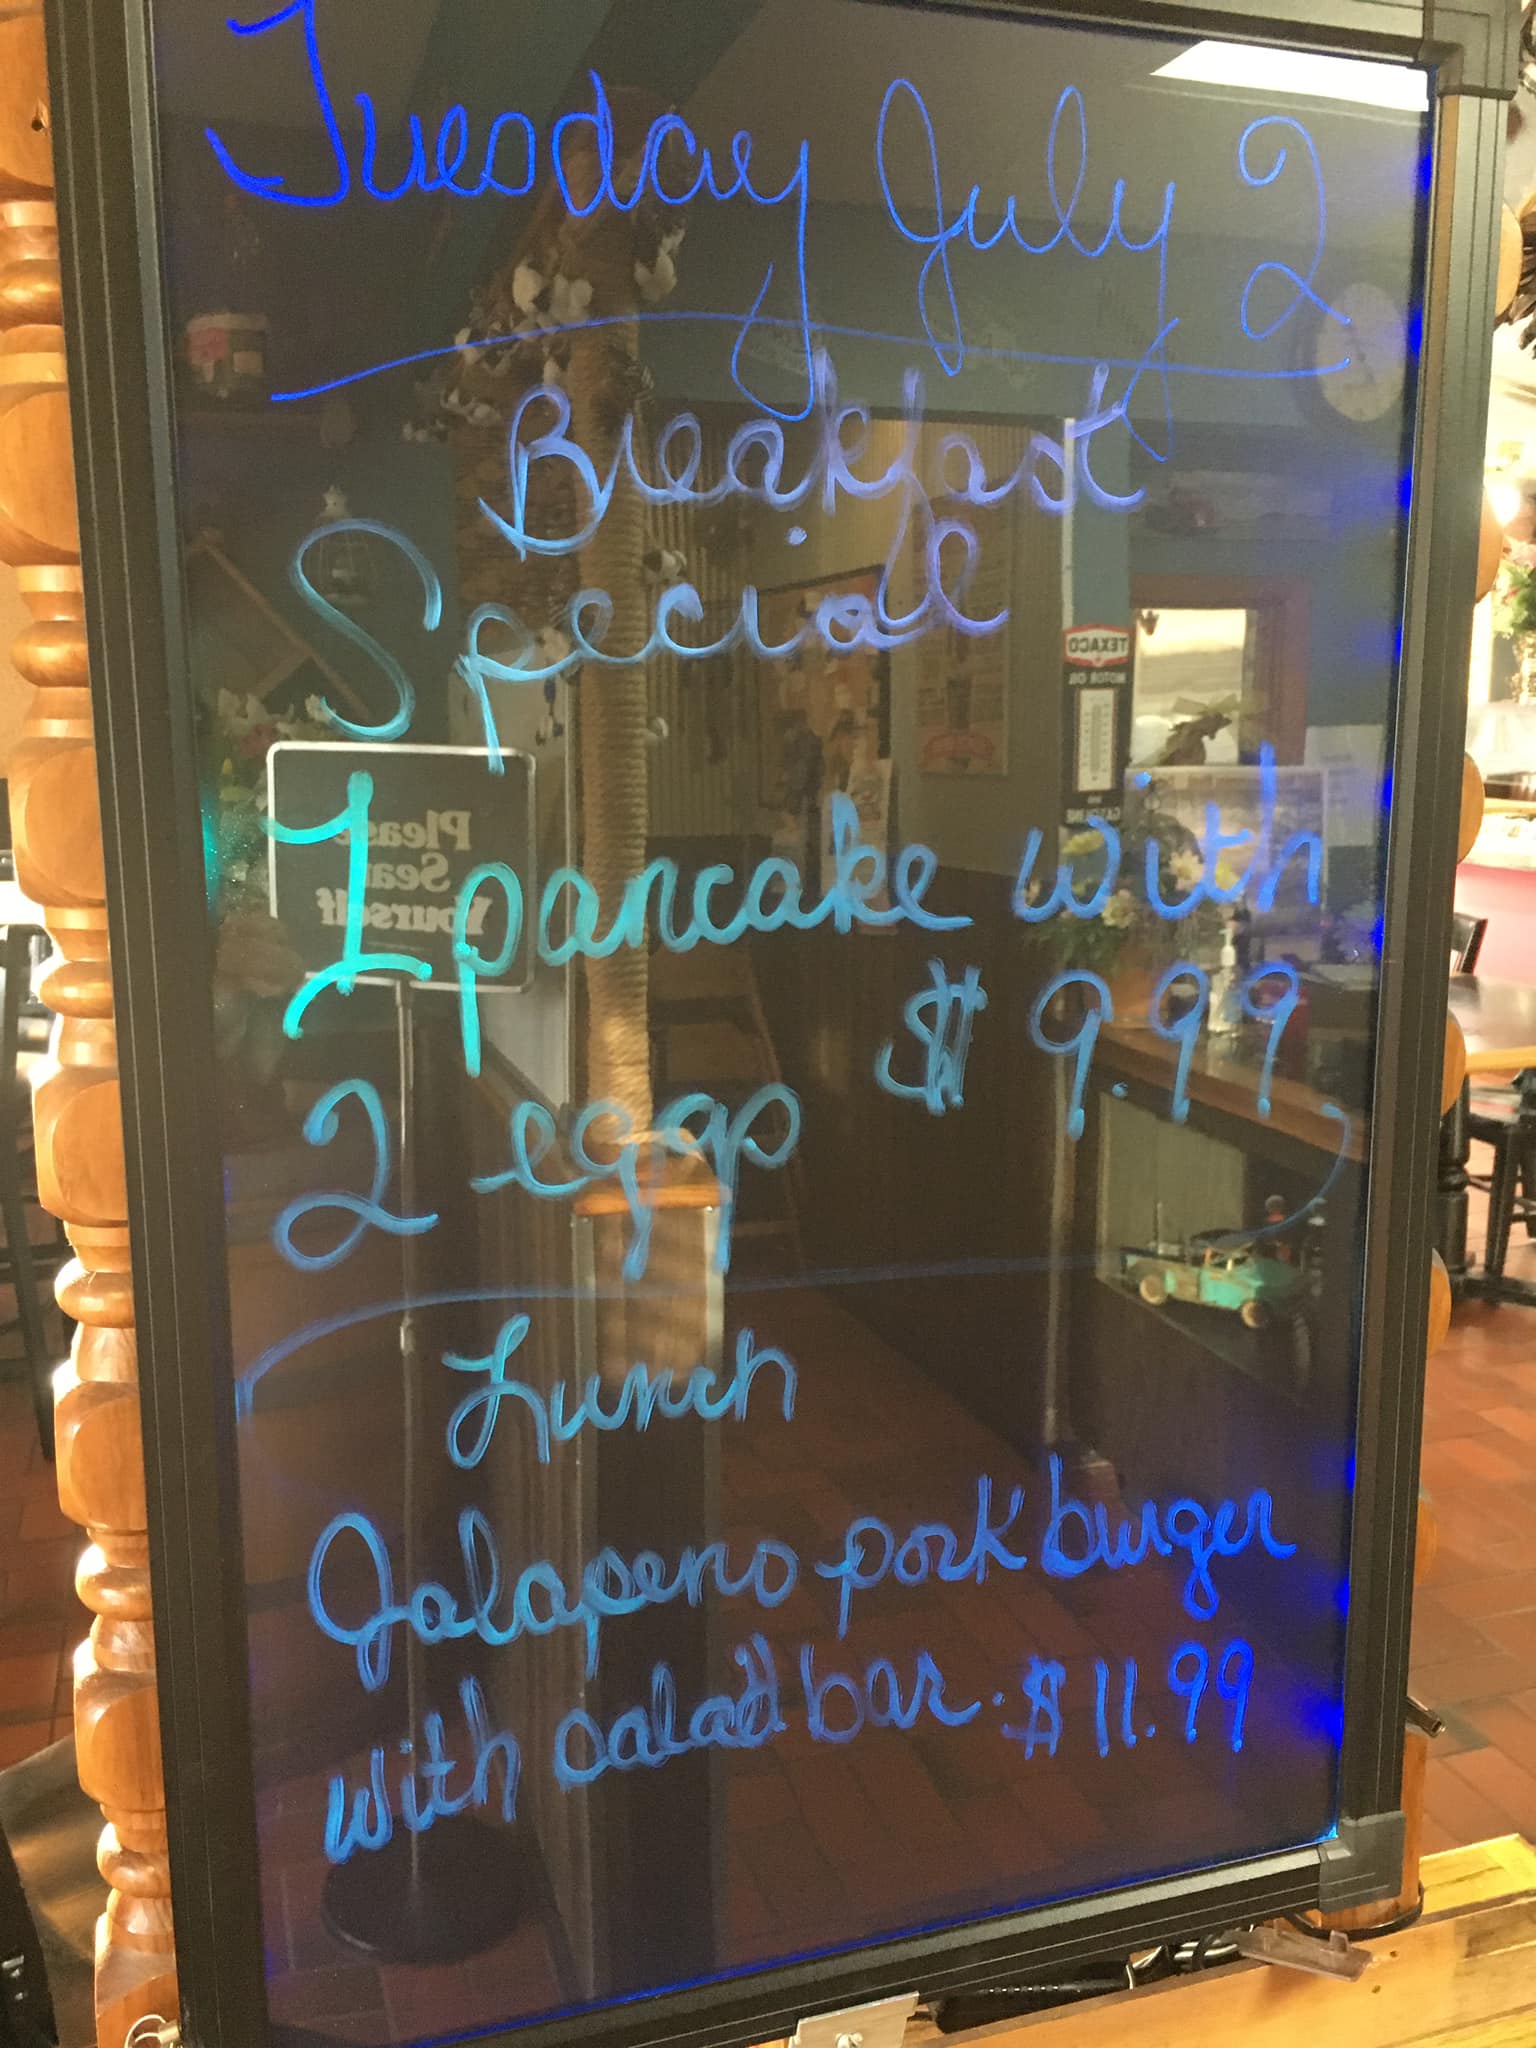 Tuesday July 2
Breakfast
Special
1 pancake with
2 eggs $9.99
Lunch
Jalapeno pork burger
with salad bar. $11.99
Please
Seat
Yourself
TEXACO
MOTOR OIL
GASOLINE